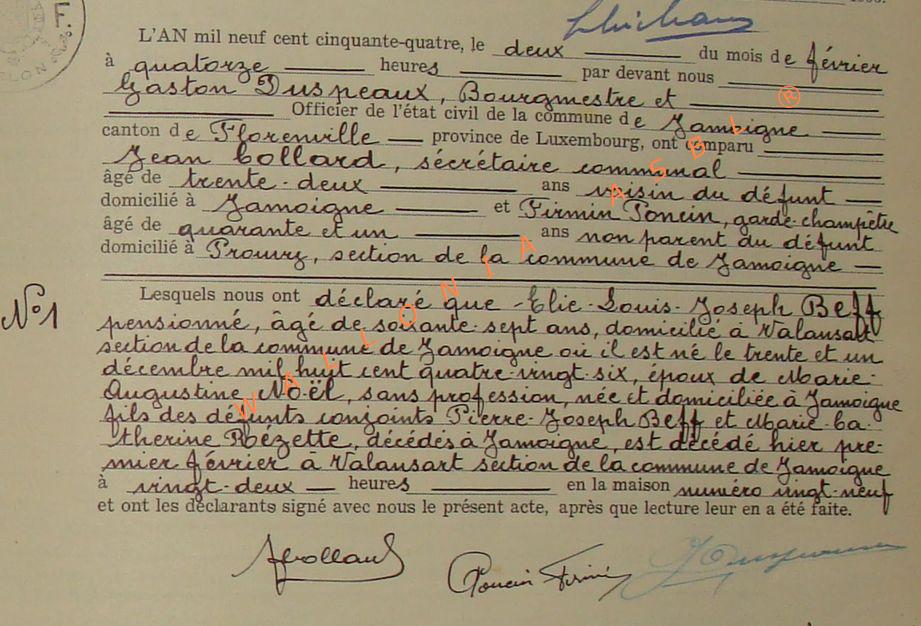 F.
LON
L'AN mil neuf cent cinquante-quatre, le deux du mois de février
à quatorze heures par devant nous
Gaston Duspeaux, Bourgmestre et
Officier de l'état civil de la commune de Jamoigne
canton de Florenville province de Luxembourg, ont comparu
Jean Collard, sécrétaire communal
âgé de trente-deux ans voisin du défunt
domicilié à Jamoigne et Firmin Poncin, garde-champêtre
âgé de quarante et un ans non parent du défunt
domicilié à Prouvy, section de la commune de Jamoigne
N°1
Lesquels nous ont déclaré que Elie-Louis-Joseph Beff
pensionné, âgé de soixante-sept ans, domicilié à Valansart
section de la commune de Jamoigne où il est né le trente et un
décembre mil huit cent quatre-vingt-six, époux de Marie-
Augustine Noël, sans profession, née et domiciliée à Jamoigne
fils des défunts conjoints Pierre-Joseph Beff et Marie-Ca-
therine Rézette, décédés à Jamoigne, est décédé hier pre-
mier février à Valansart section de la commune de Jamoigne
à vingt-deux heures en la maison numéro vingt-neuf
et ont les déclarants signé avec nous le présent acte, après que lecture leur en a été faite.
JCollard
Poncin Firmin
WALLONIA ASBL ®